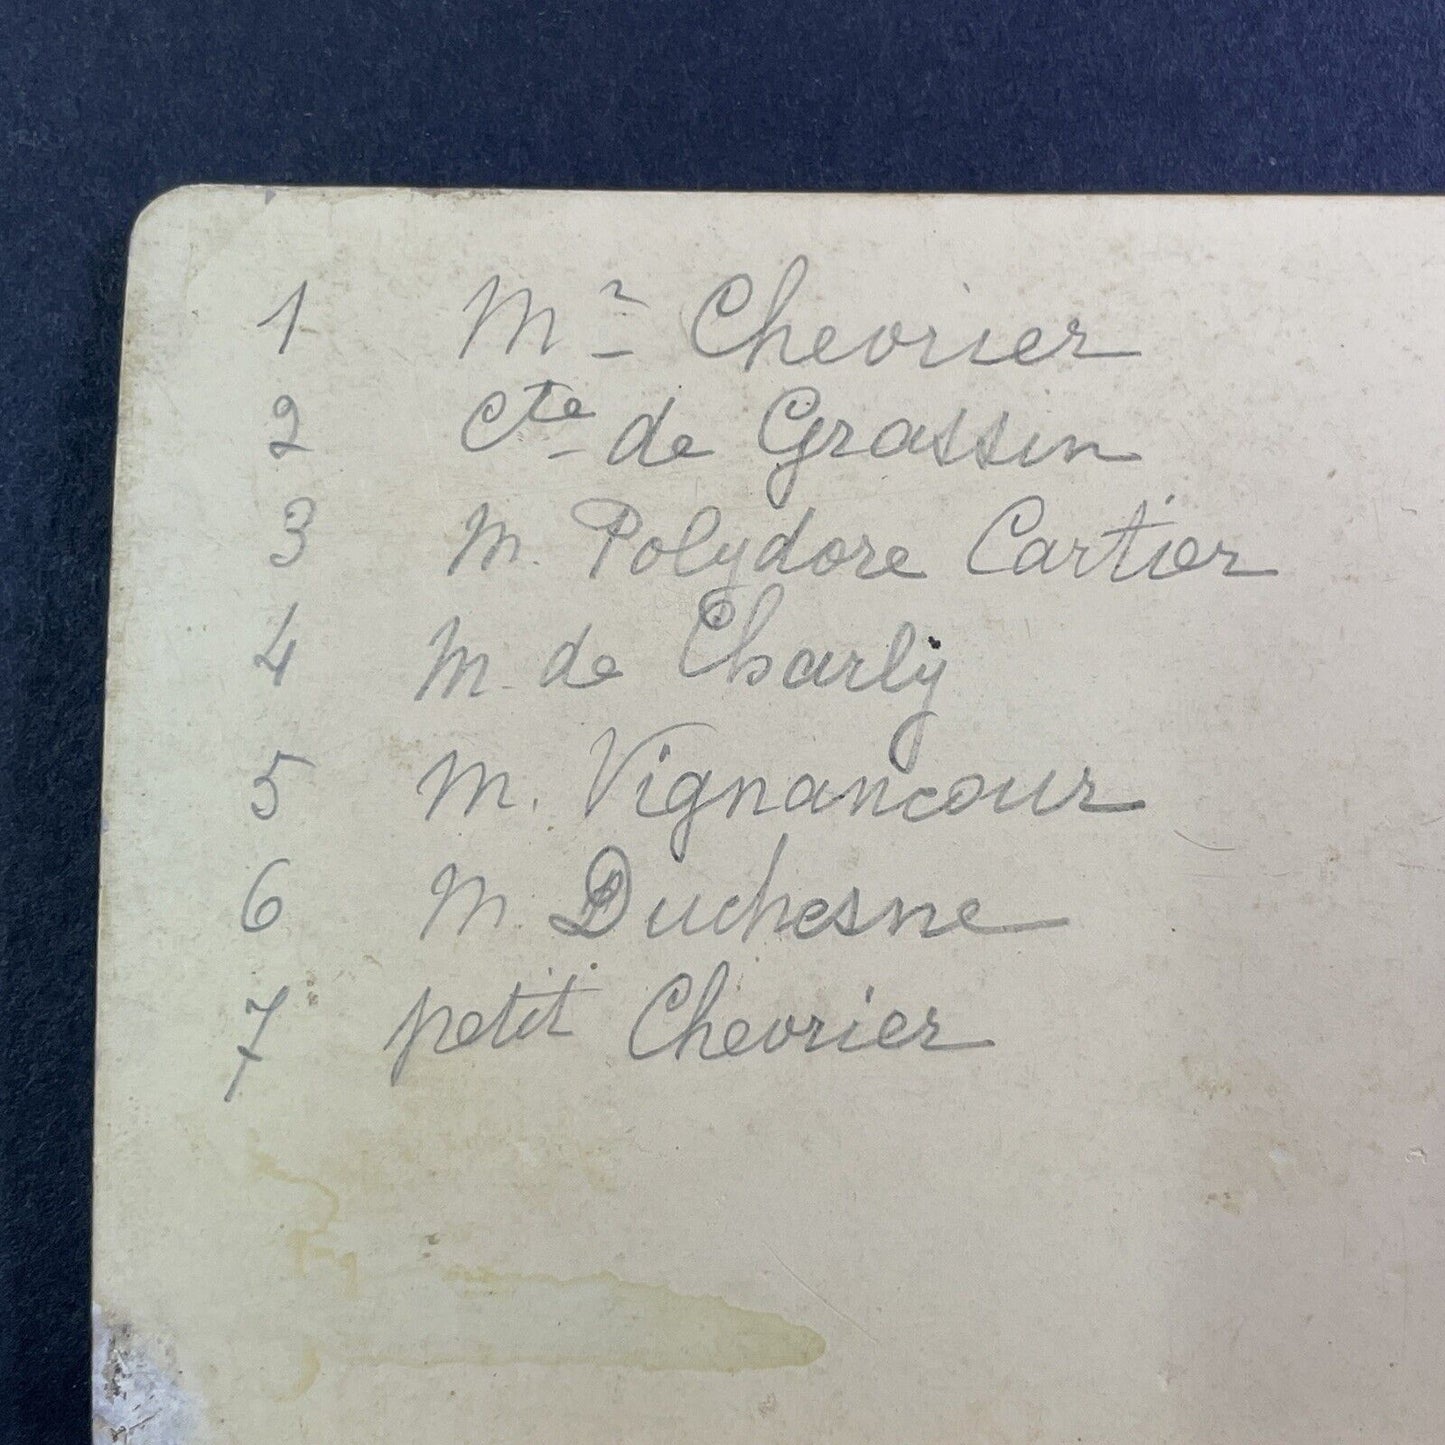 1 Mr Chevrier
2 Cte de Grassin
3 M. Polydore Cartier
4 M. de Charly
5 M. Vignancour
6 M. Duchesne
7 petit Chevrier